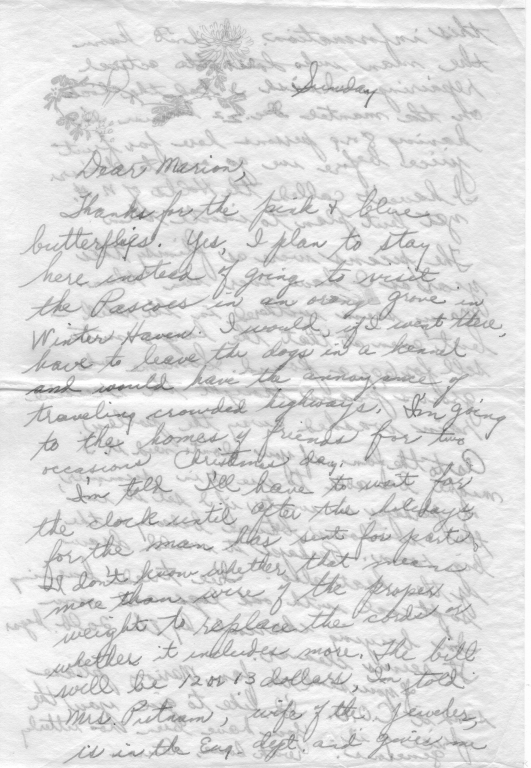 Sunday
Dear Marion,
Thanks for the pink & blue
butterflies. Yes, I plan to stay
here instead of going to visit
the Pascoes in an orange grove in
Winter Haven. I would, if I went there,
have to leave the dogs in a kennel
and would have the annoyance of
traveling crowded highways. I'm going
to the homes of friends for two
occasions Christmas day.
I'm told I'll have to wait for
the clock until after the holidays
for the man has sent for parts.
I don't know whether that means
more than wire of the proper
weight to replace the cords or
whether it includes more. The bill
will be 12 or 13 dollars, I'm told
Mrs. Putnam, wife of the jeweler,
is in the Eng. dept. and gives me